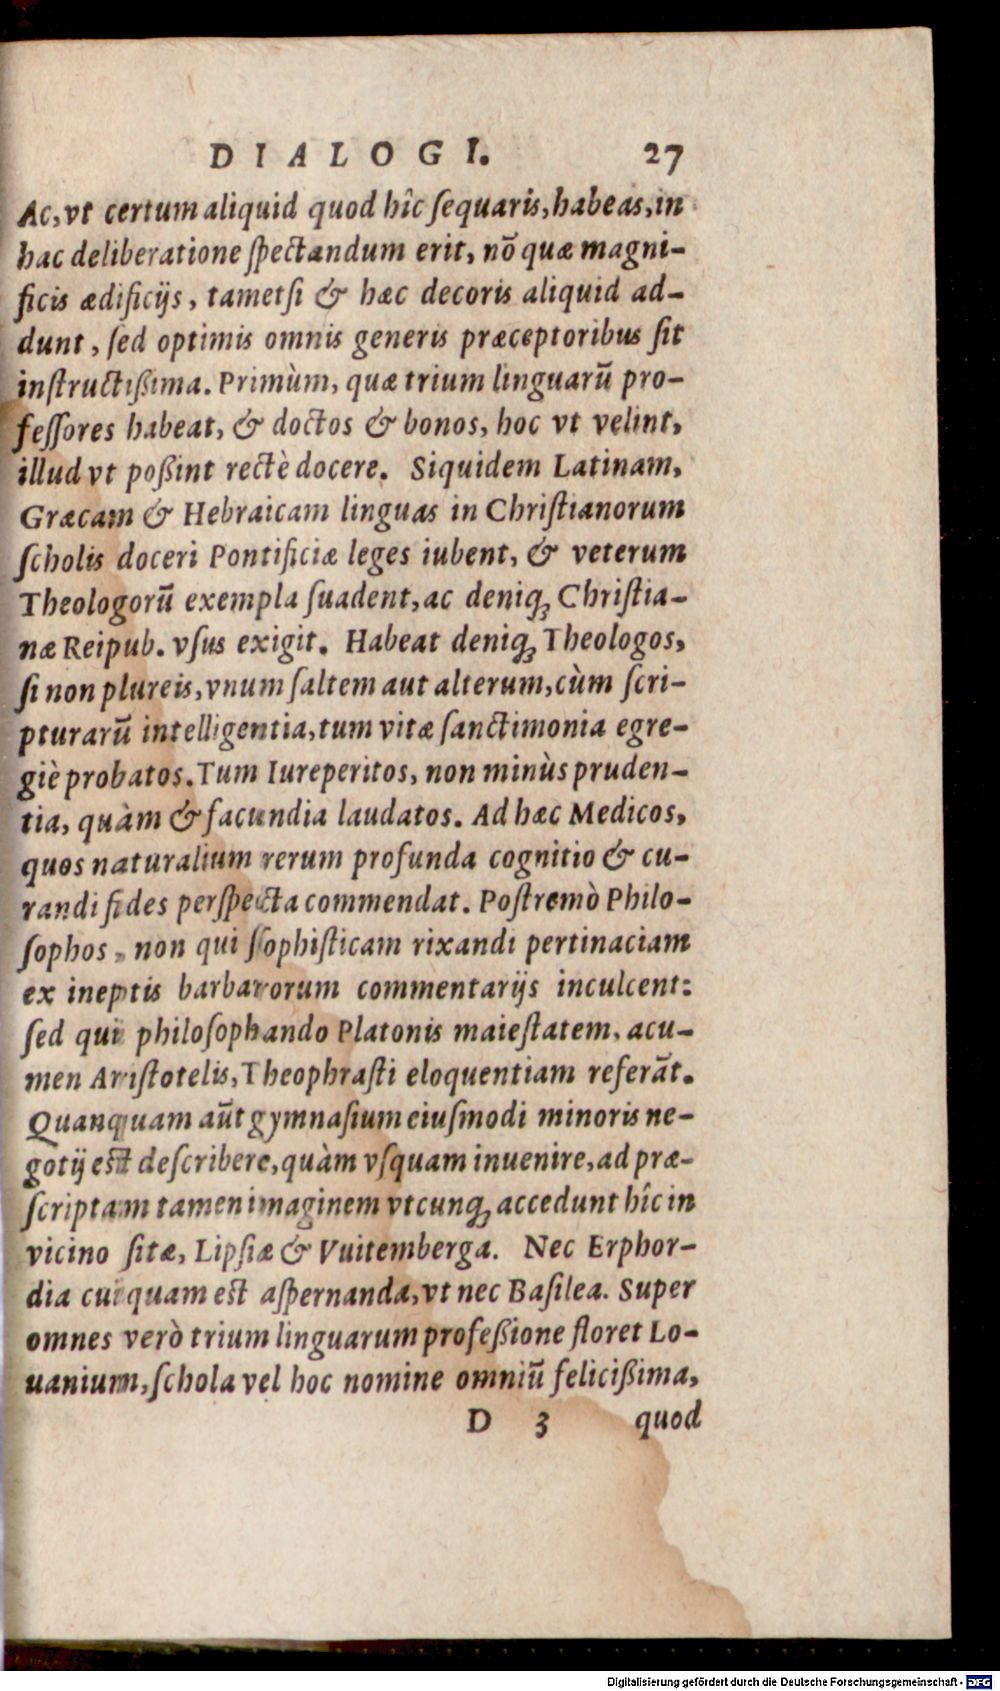 DIALOGI. 27
Ac, vt certum aliquid quod hîc ſequaris, habeas, in
hac deliberatione ſpectandum erit, nõ quæ magni-
ficis ædificijs, tametſi & hæc decoris aliquid ad-
dunt, ſed optimis omnis generis præceptoribus ſit
inſtructißima. Primùm, quæ trium linguarũ pro-
feſſores habeat, & doctos & bonos, hoc vt velint,
illud vt poßint rectè docere. Siquidem Latinam,
Græcam & Hebraicam linguas in Chriſtianorum
ſcholis doceri Pontificiæ leges iubent, & veterum
Theologorũ exempla ſuadent, ac deniq; Chriſtia-
næ Reipub. vſus exigit. Habeat deniq; Theologos,
ſi non plureis, vnum ſaltem aut alterum, cùm ſcri-
pturarũ intelligentia, tum vitæ ſanctimonia egre-
giè probatos. Tum Iureperitos, non minùs pruden-
tia, quàm & facundia laudatos. Ad hæc Medicos,
quos naturalium rerum profunda cognitio & cu-
randi fides perſpecta commendat. Poſtremò Philo-
ſophos, non qui ſophiſticam rixandi pertinaciam
ex ineptis barbarorum commentarijs inculcent:
ſed qui philoſophando Platonis maieſtatem, acu-
men Ariſtotelis, Theophraſti eloquentiam referãt.
Quanquam aũt gymnaſium eiuſmodi minoris ne-
gotij eſt deſcribere, quàm vſquam inuenire, ad præ-
ſcriptam tamen imaginem vtcunq; accedunt hîc in
vicino ſitæ, Lipſiæ & Vuitemberga. Nec Erphor-
dia cuiquam eſt aſpernanda, vt nec Baſilea. Super
omnes verò trium linguarum profeßione floret Lo-
uanium, ſchola vel hoc nomine omniũ felicißima,
D 3 quod
Digitalisierung gefördert durch die Deutsche Forschungsgemeinschaft - DFG